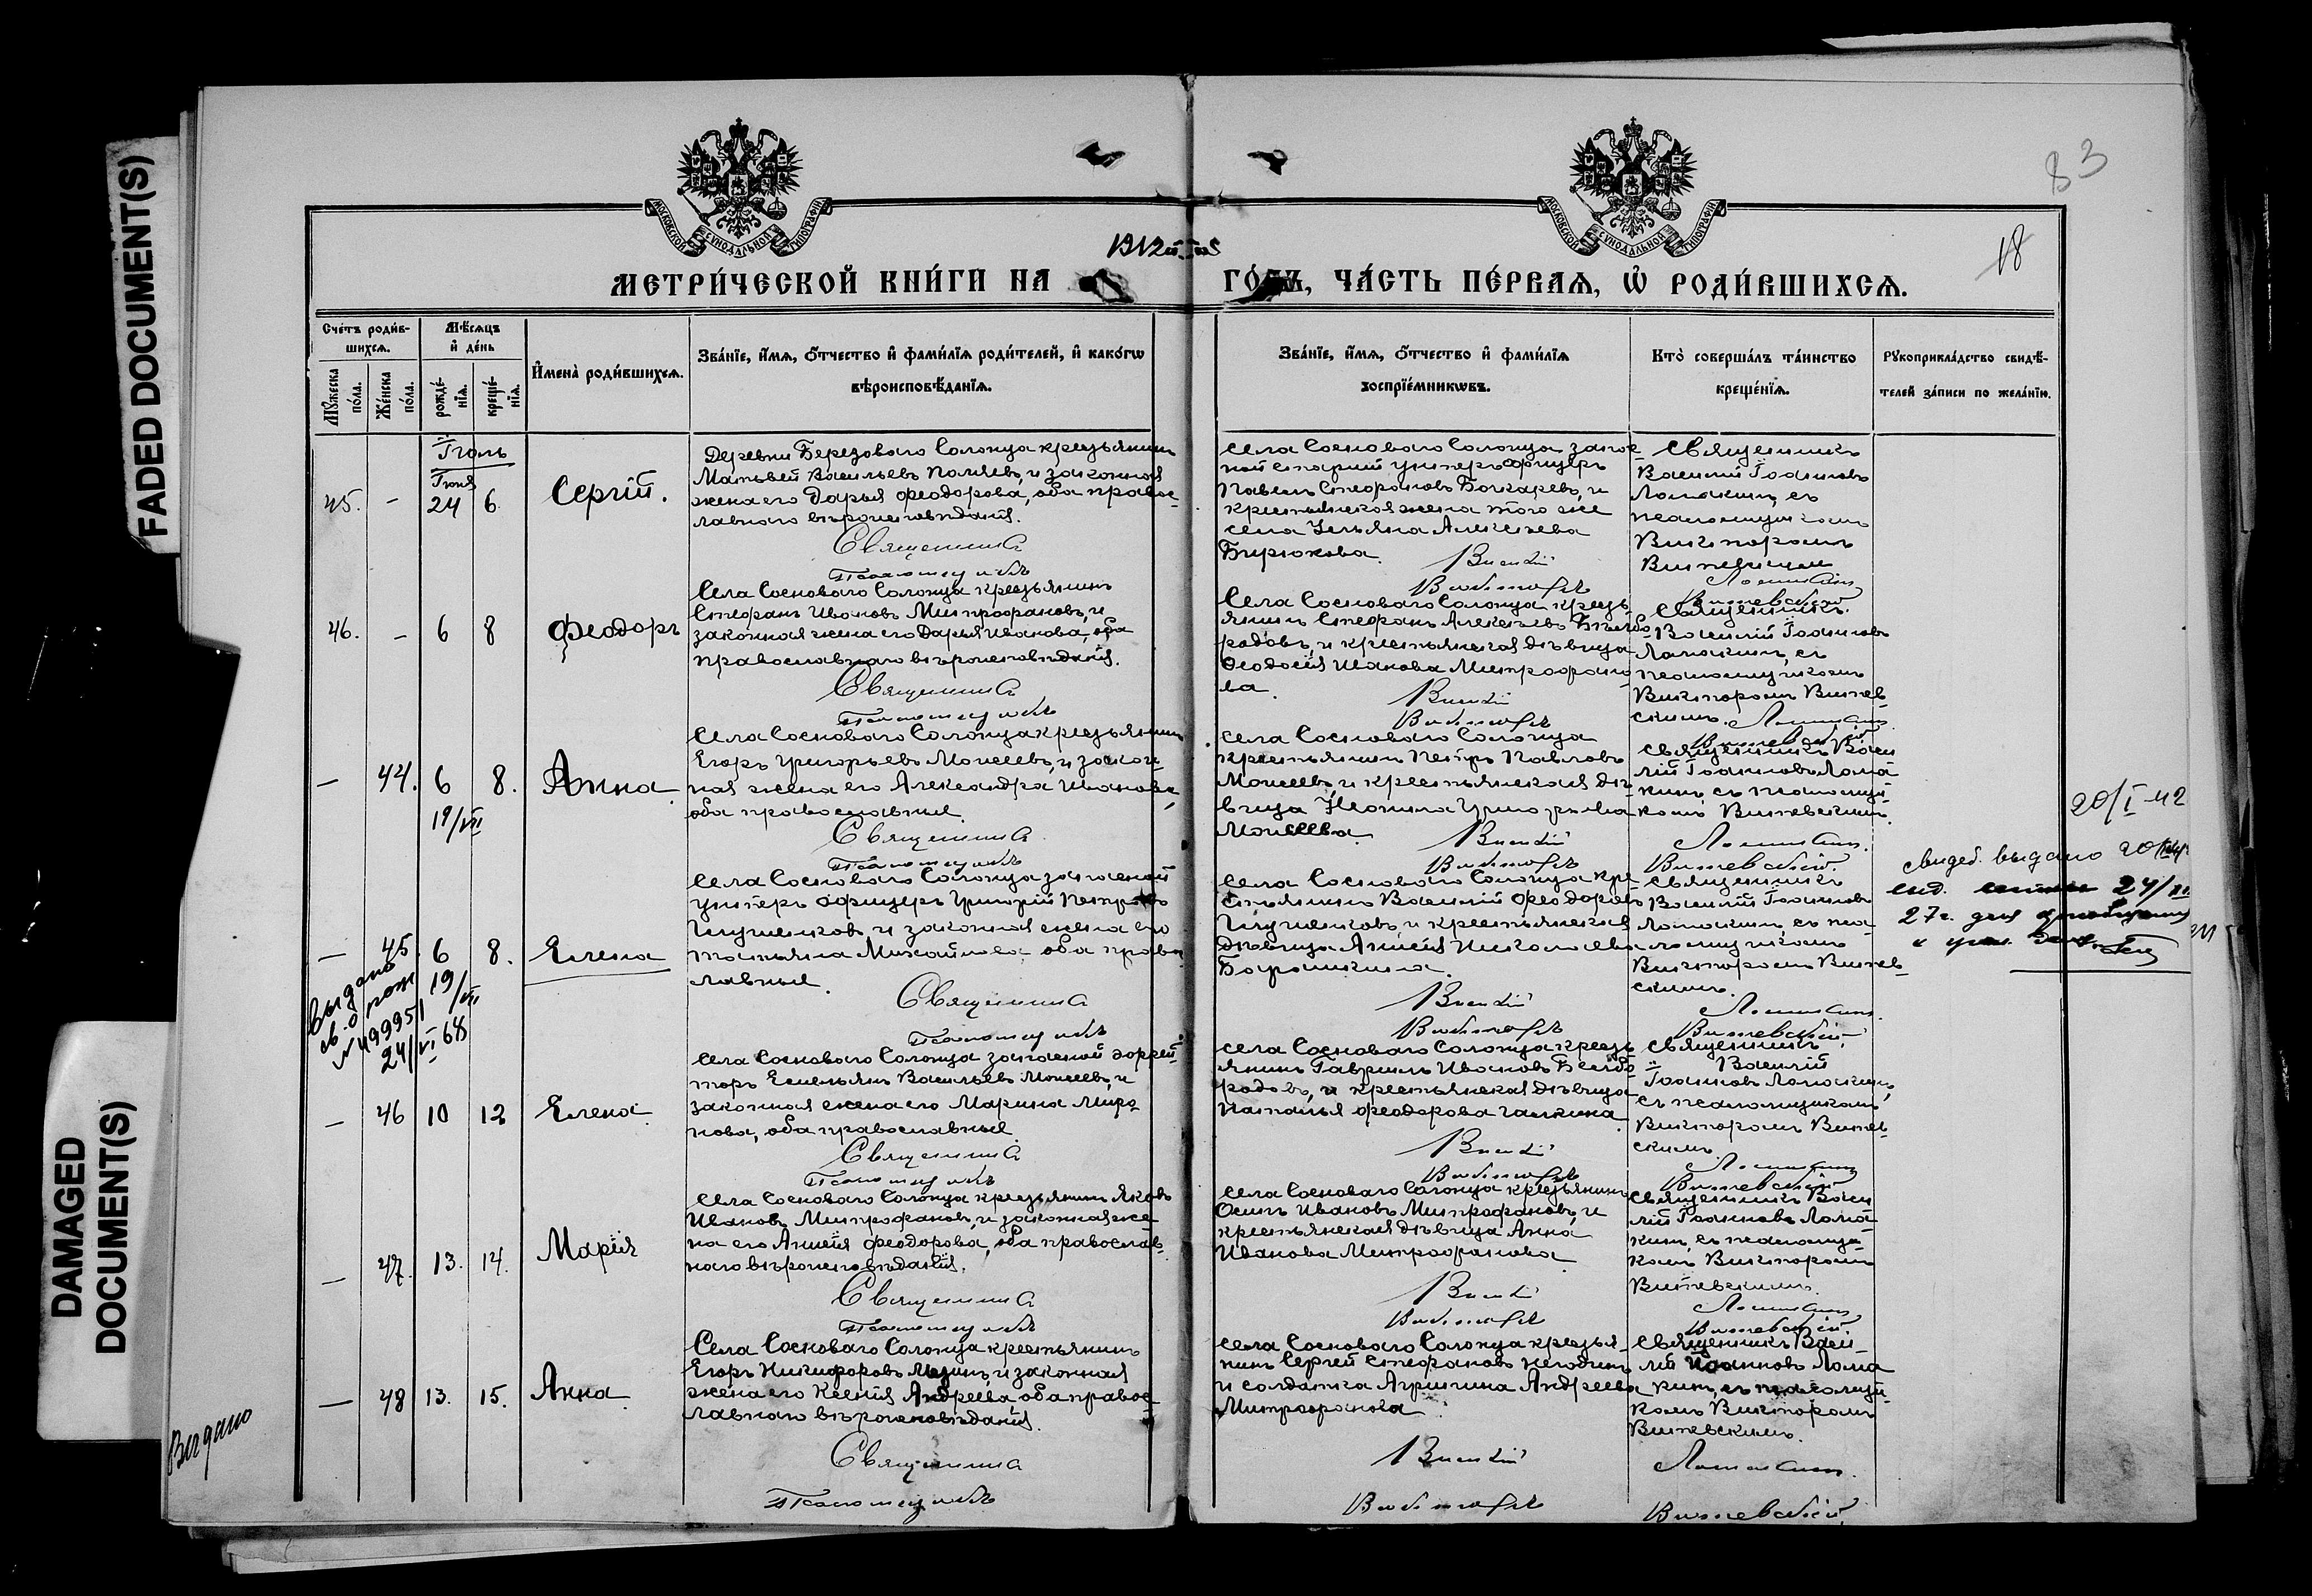 FADED DOCUMENT(S)
DAMAGED
DOCUMENT(S)
83
18
МОСКОВСКОЙ СѴНОДАЛЬНОЙ ТИПОГРАФІИ
МОСКОВСКОЙ СѴНОДАЛЬНОЙ ТИПОГРАФІИ
1912
МЕТРИ́ЧЕСКОЙ КНИ́ГИ НА ГО́ДЪ, ЧА́СТЬ ПЕ́РВАЯ, Ѡ РОДИ́ВШИХСЯ.
Сче́тъ роди́в-
шихся.
Мꙋ́жеска по́ла.
Же́нска по́ла.
Мѣ́сяцъ
и де́нь
рожде́-
нїя.
креще́-
нїя.
И́мена̀ роди́вшихся.
Зва́нїе, и́мя, о́тчество и фами́лїя роди́телей, и како́гѡ
вѣроисповѣ́данїя.
Зва́нїе, и́мя, о́тчество и фами́лїя
воспрїе́мникѡвъ.
Кто̀ соверша́лъ та́инство
креще́нїя.
Рꙋкоприкла́дство свидѣ́-
телей за́писи по жела́нїю.
Іюль
Іюня
45. - 24 6. Сергій.
Деревни Березоваго Солонца крестьянинъ
Матвей Васильевъ и законная
жена его Дарья Феодорова, оба правос-
лавнаго вѣроисповѣданія.
Священникъ
Псаломщикъ
Села Сосноваго Солонца запас-
ной старшій унтеръ офицеръ
Павелъ Стефановъ Бочкаревъ, и
крестьянская жена того же
села Ульяна Алексѣева
Бирюкова.
Василій
Викторъ
Священникъ
Василій Іоанновъ
Ломакинъ, съ
псаломщикомъ
Викторомъ
Витевскимъ
Ломакинъ.
Витевскій.
46. - 6 8 Феодоръ
Села Сосноваго Солонца крестьянинъ
Стефанъ Ивановъ Митрофановъ, и
законная жена его Дарья Иванова, оба
православнаго вѣроисповѣданія.
Священникъ
Псаломщикъ
Села Сосноваго Солонца кресть-
янинъ Стефанъ Алексѣевъ Бѣлбо-
родовъ, и крестьянская дѣвица
Феодосія Иванова Митрофано-
ва.
Василій
Викторъ
Священникъ
Василій Іоанновъ
Ломакинъ, съ
псаломщикомъ
Викторомъ Витев-
скимъ.
Ломакинъ
Витевскій
- 44. 6 8. Анна
19/VII
Села Сосноваго Солонца крестьянинъ
Егоръ Григорьевъ Моисеевъ, и закон-
ная жена его Александра Иванова,
оба православные.
Священникъ
Псаломщикъ
Села Сосноваго Солонца
крестьянинъ Петръ Павловъ
Моисеевъ, и крестьянская дѣ-
вица Григорьева
Моисеева.
Василій
Викторъ
Священникъ Васи-
лій Іоанновъ Лома-
кинъ, съ псаломщи-
комъ Витевскимъ.
Ломакинъ.
Витевскій.
20/I 42
- 45. 6 8. Елена
19/VII
Села Сосноваго Солонца запасной
унтеръ офицеръ Григорій Петровъ
и законная жена его
Татьяна Михайлова оба право-
славные.
Священникъ
Псаломщикъ
Села Сосноваго Солонца кре-
стьянинъ Василій Феодоровъ
и крестьянская
дѣвица Анисія Николаева
Василій
Викторъ
Священникъ
Василій Іоанновъ
Ломакинъ, съ пса-
ломщикомъ
Викторомъ Витев-
скимъ.
Ломакинъ.
Витевскій.
свидет. выдано
24/
27г. для
выдано
св. о рож
№ 499951
24/VI 68
- 46 10 12 Елена
Села Сосноваго Солонца запасной ефрей-
торъ Емельянъ Васильевъ Моисеевъ, и
законная жена его Марина Миро-
нова, оба православные.
Священникъ
Псаломщикъ
Села Сосноваго Солонца кресть-
янинъ Гавриилъ Ивановъ Бѣлбо-
родовъ, и крестьянская дѣвица
Наталья Феодорова Галкина.
Василій
Викторъ
Священникъ
Василій
Іоанновъ Ломакинъ,
съ псаломщикомъ
Викторомъ Витев-
скимъ.
Ломакинъ
Витевскій
- 47. 13. 14. Марія
Села Сосноваго Солонца крестьянинъ Яковъ
Ивановъ Митрофановъ, и законная же-
на его Анисія Феодорова, оба православ-
наго вѣроисповѣданія.
Священникъ
Псаломщикъ
Села Сосноваго Солонца крестьянинъ
Осипъ Ивановъ Митрофановъ, и
крестьянская дѣвица Анна
Иванова Митрофанова
Василій
Викторъ
Священникъ Васи-
лій Іоанновъ Лома-
кинъ, съ псаломщи-
комъ Викторомъ
Витевскимъ.
Ломакинъ
Витевскій.
- 48 13. 15. Анна
Села Сосноваго Солонца крестьянинъ
Егоръ Никифоровъ и законная
жена его Ксенія Андреева, оба правос-
лавнаго вѣроисповѣданія.
Священникъ
Псаломщикъ
Села Сосноваго Солонца крестья-
нинъ Сергей Стефановъ Негодинъ
и солдатка Агрипина Андреева
Митрофанова
Василій
Викторъ
Священникъ Васи-
лій Іоанновъ Лома-
кинъ, съ псаломщи-
комъ Викторомъ
Витевскимъ.
Ломакинъ.
Витевскій.
Выдано